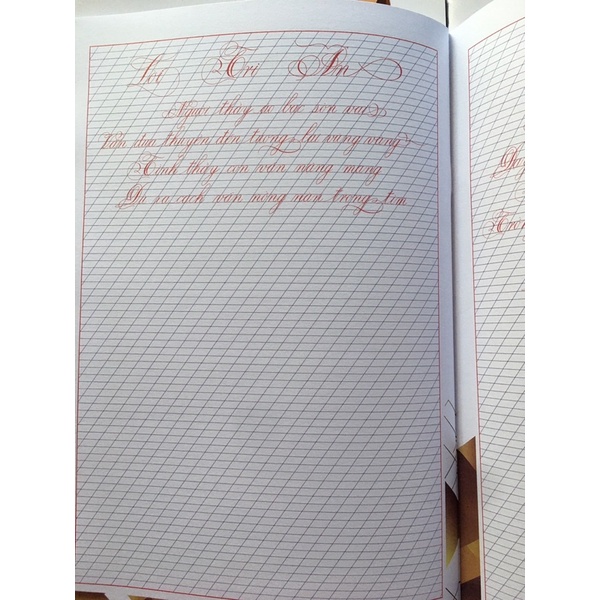 Lời Tri Ân
Người thầy áo bạc sờn vai
Vẫn đưa thuyền đến tương lai vững vàng
Tình thầy con vẫn nặng mang
Dù xa cách vẫn nồng nàn trong tim
Tron